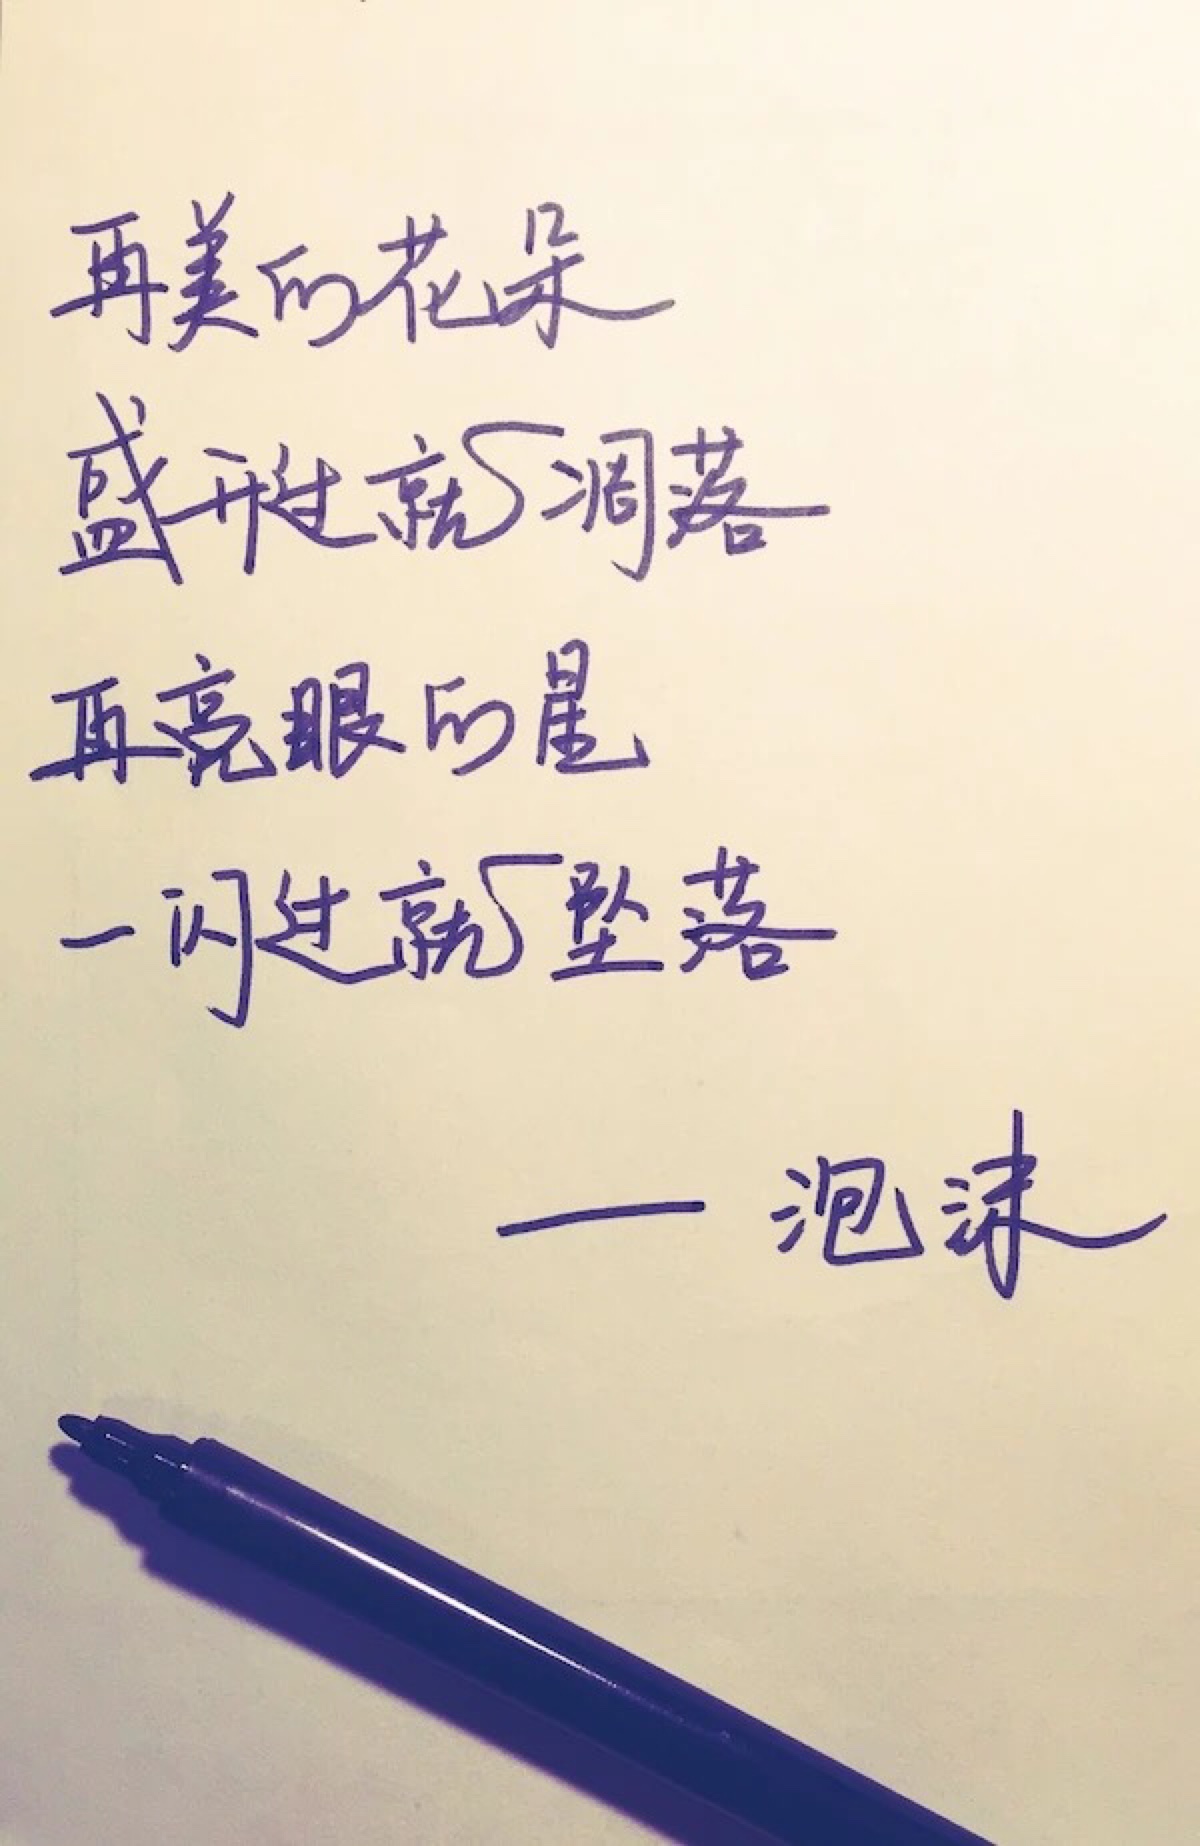 再美的花朵
盛开过就凋落
再亮眼的星
一闪过就坠落
— 泡沫